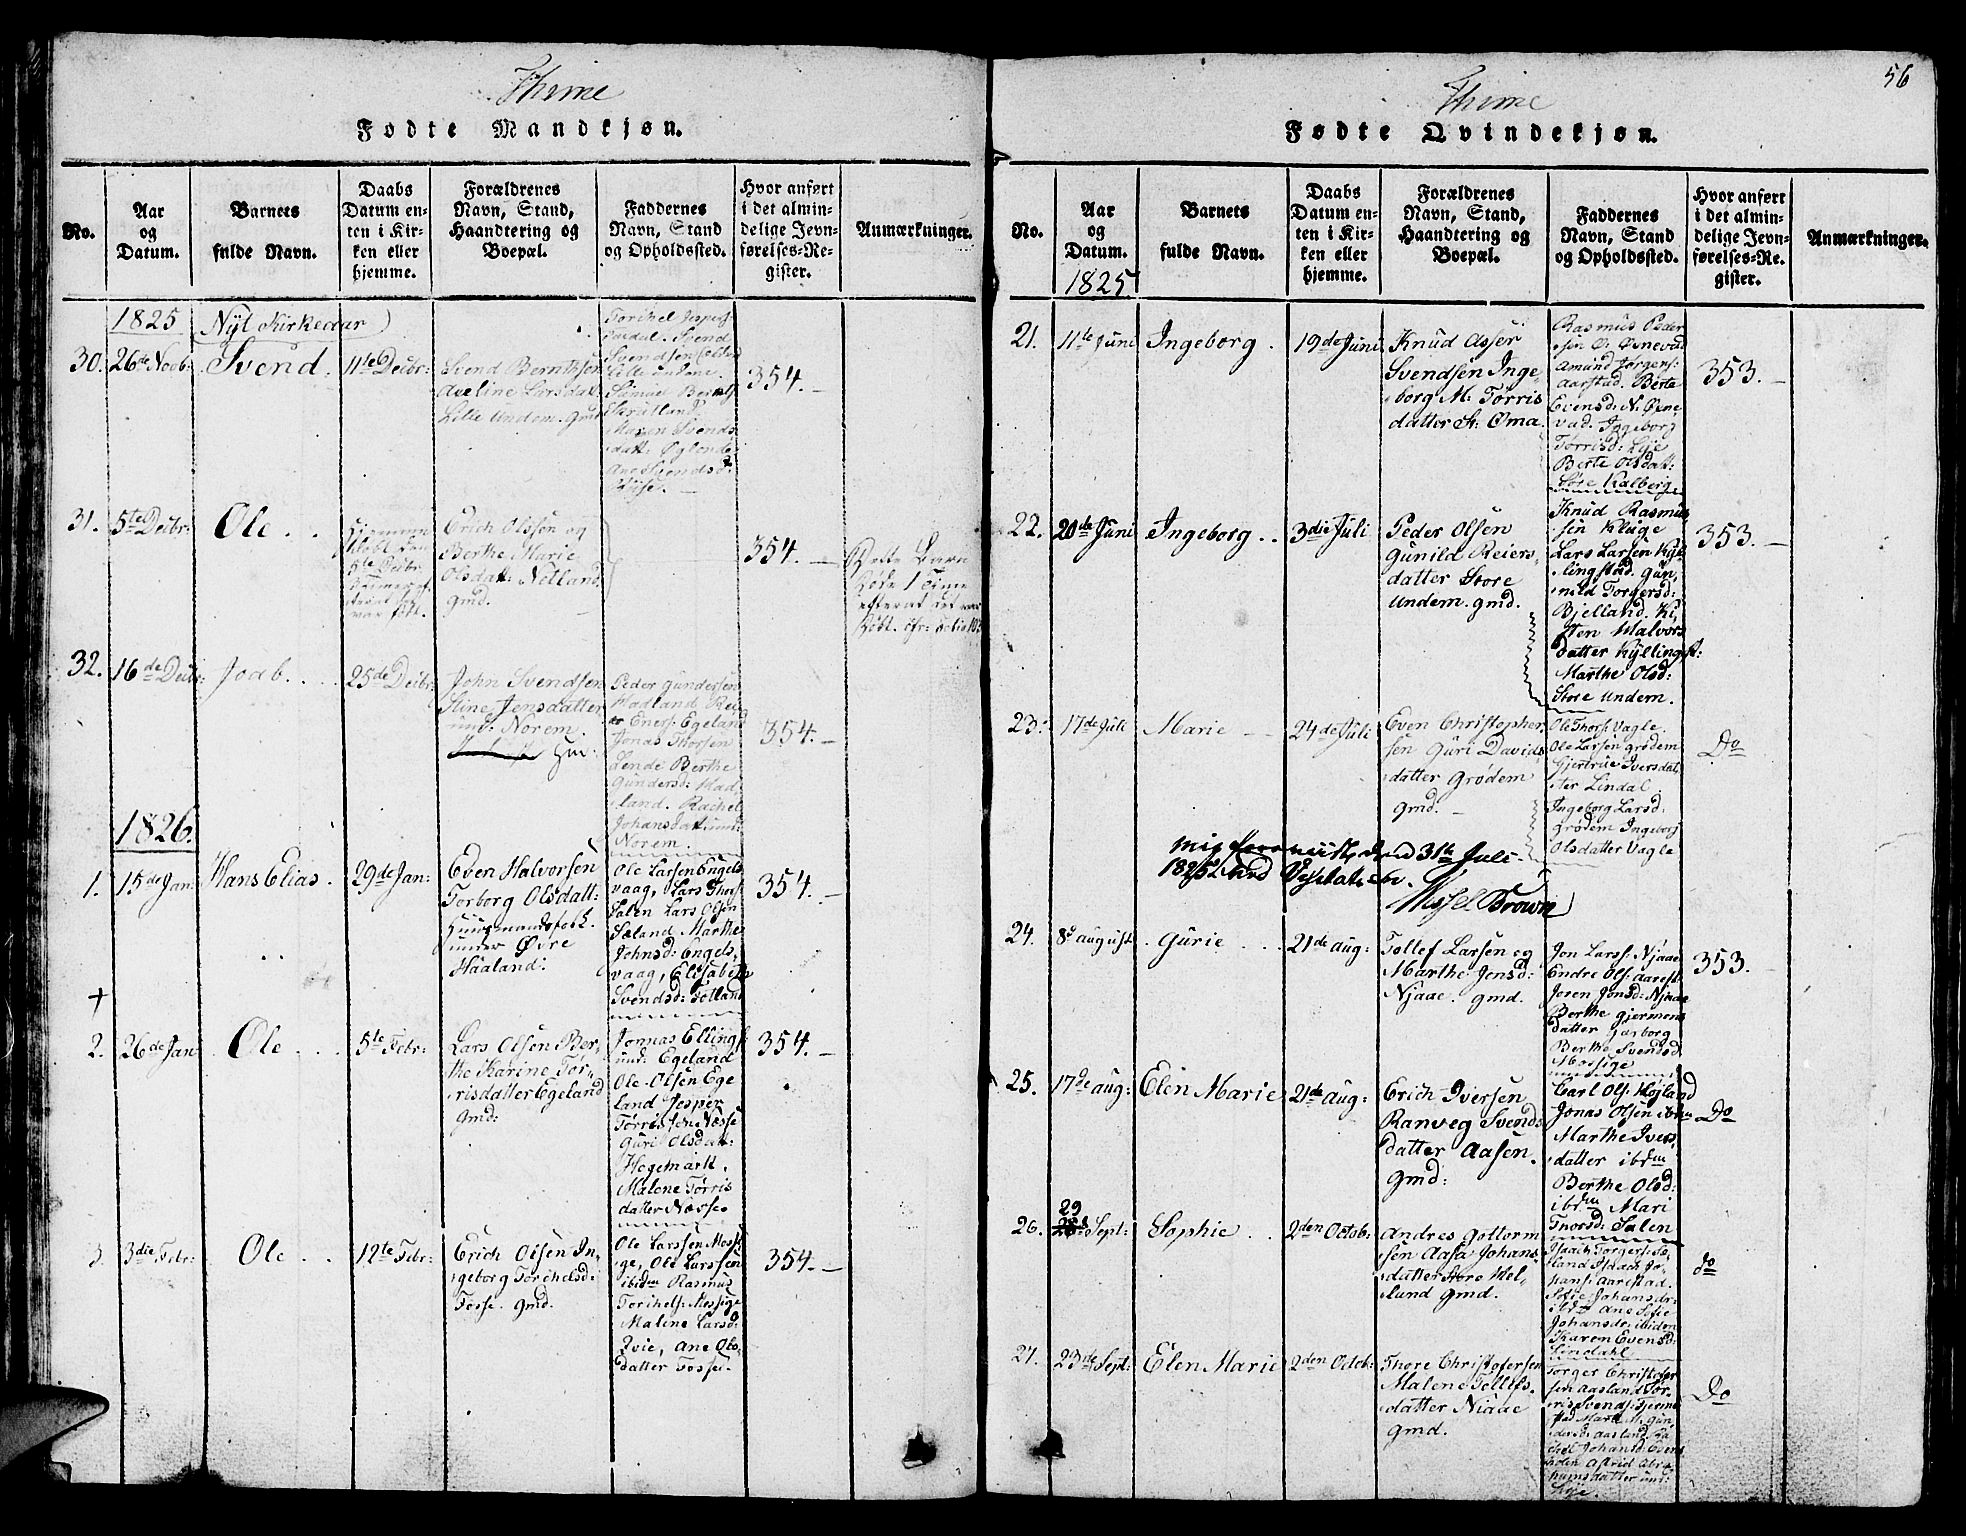 Thime
Fødte Mandkjøn.
No.
Aar
og
Datum.
Barnets
fulde Navn.
Daabs
Datum en-
ten i Kir-
ken eller
hjemme.
Forældrenes
Navn, Stand,
Haandtering og
Boepæl.
Faddernes
Navn, Stand
og Opholdssted.
Hvor anført
i det almin-
delige Jevn-
førelses-Re-
gister.
Anmærkninger.
1825 Nyt Kirkeaar
30. 26de Novb: Svend. 11te Decbr:
Svend Berntsen
Aveline Larsdat:
Lille Undem. gmd
Torikel Jespers:
Svend
Svendsen
Lille undem.
Maren Svends
datt: Øglende
Ane Svendsd:
354.
31. 5te Decbr: Ole
Hjemme
døbt
var født.
Erich Olsen og
Berthe Marie
Olsdat: Netland
gmd.
354.
Dette Barn
Døde 1 Time
efterat det var
Døbt.
32. 16de Decbr: Joab. 25de Decbr:
John Svendsen
Stine Jensdatter
und: Norem.
gm:
Peder Gundersen
Hadland Rei-
er Eners: Egeland
Jonas Thorsen
Lende Berthe
Gundersd: Had
land. Rachel
Johansdat: und:
Norem.
354.
1826.
1. 15de Jan: Hans Elias. 29de Jan:
Even Halvorsen
Torborg Olsdatt:
Huusmandsfolk
under Øvre
Haaland:
Ole Larsen Engels
vaag, Lars Thors:
Salen Lars Olsen
Sæland Marthe
Johnsd: Engels,
vaag, Elisabeth
Svendsd: Fotland
354.
†
2. 26de Jan Ole 5te Febr:
Lars Olsen Ber-
the Karine Tør-
risdatter Egeland
gmd:
Jonnas Ellings:
und: Egeland
Ole Olsen Ege
land Jesper
Tørrissen Næsse
Guri Olsdat:
Hegemark.
Malene Tørris
datter Næsse
354.
3. 3die Febr: Ole 12te Febr:
Erich Olsen In-
geborg Torikelsd:
Tosse. gmd.
Ole Larssen Mossi
ge, Ole Larssen
ibidem Rasmus
Torikels: Mossige
Maline Larsd:
Qvie, Ane Ols-
datter Tosse.
354.
56
Thime
Fødte Qvindekjøn.
No.
Aar
og
Datum.
1825
Barnets
fulde Navn.
Daabs
Datum en-
ten i Kir-
ken eller
hjemme.
Forældrenes
Navn, Stand,
Haandtering og
Boepæl.
Faddernes
Navn, Stand
og Opholdssted.
Hvor anført
i det almin-
delige Jevn-
førelses-Re-
gister.
Anmærkninger.
21. 11te Juni Ingeborg. 19de Juni
Knud Asser
Svendsen Inge-
borg M: Tørris
datter St: Oma.
Rasmus Peder
sen Ø: Øxnevad
Amund Jørgens:
Aarstad. Berte
Evensd: N: Øxne-
vad. Ingeborg
Tørrisd: Lye
Berte Olsdatt:
Store Kalberg.
353.
22. 20de Juni Ingeborg. 3die Juli
Peder Olsen
Gunild Reiers
datter Store
undem. gmd.
Knud Rasmus
sen Kluge
Lars Larsen Kyl-
lingstad. Gun,
nild Torgersd:
Bjelland. Ki,
sten Halvors
datter Kyllingst:
Marthe Olsd:
Store undem.
353.
23. 17de Juli Marie 24de Juli
Even Christopher
sen Guri Davids
datter Grødem
gmd.
Ole Thors: Vagle
Ole Larsen Grødem
Gjertrue Iversdat,
ter Lindal
Ingeborg Larsd:
Grødem Ingeborg
Olsdatter Vagle
Do
31te Juli
1825
Brown
24. 8de August. Gurie 21de Aug:
Tollef Larsen og
Marthe Jonsd:
Njaae. gmd.
Jon Larss: Njaae
Endre Ols: Aarest:
Joren Jonsd: Njaae
Berthe Gjermens
datter Garborg
Berthe Svendsd
Mossige
353.
25. 17de Aug: Elen Marie 21de Aug:
Erich Iversen
Ranveg Svends
datter Aasen.
gmd:
Carl Ols: Højland
Jonas Olsen ibm
Marthe Ivers,
datter ibdm
Berthe Olsd:
ibdm Mari
Thorsd: Salen
Do
26. 29 Sept: Sophie 2den Octob:
Andres Gottorm
sen Aasa Johans
datter Store Mel-
lund gmd.
Isaach Torgers: Sø-
land Isaach Jo-
hans: Aarestad.
Sofie Johansdr:
ibdm Ane Sofie
Johansdr: ibiden
Karem Evensd:
Lindahl
do
27. 23de Sept: Elen Marie 2den Octob:
Thore Christofersen
Malene Tollefs-
datter Niaae
gmd.
Torger Christofer
sen Aasland Tør-
ris Svends: Tjerne
stad Marth: M: Gun,
dersd: Aasland. Ra
chel Johansd: Evens
Astrid Abra
hamsdatter und:
Lye.
Do